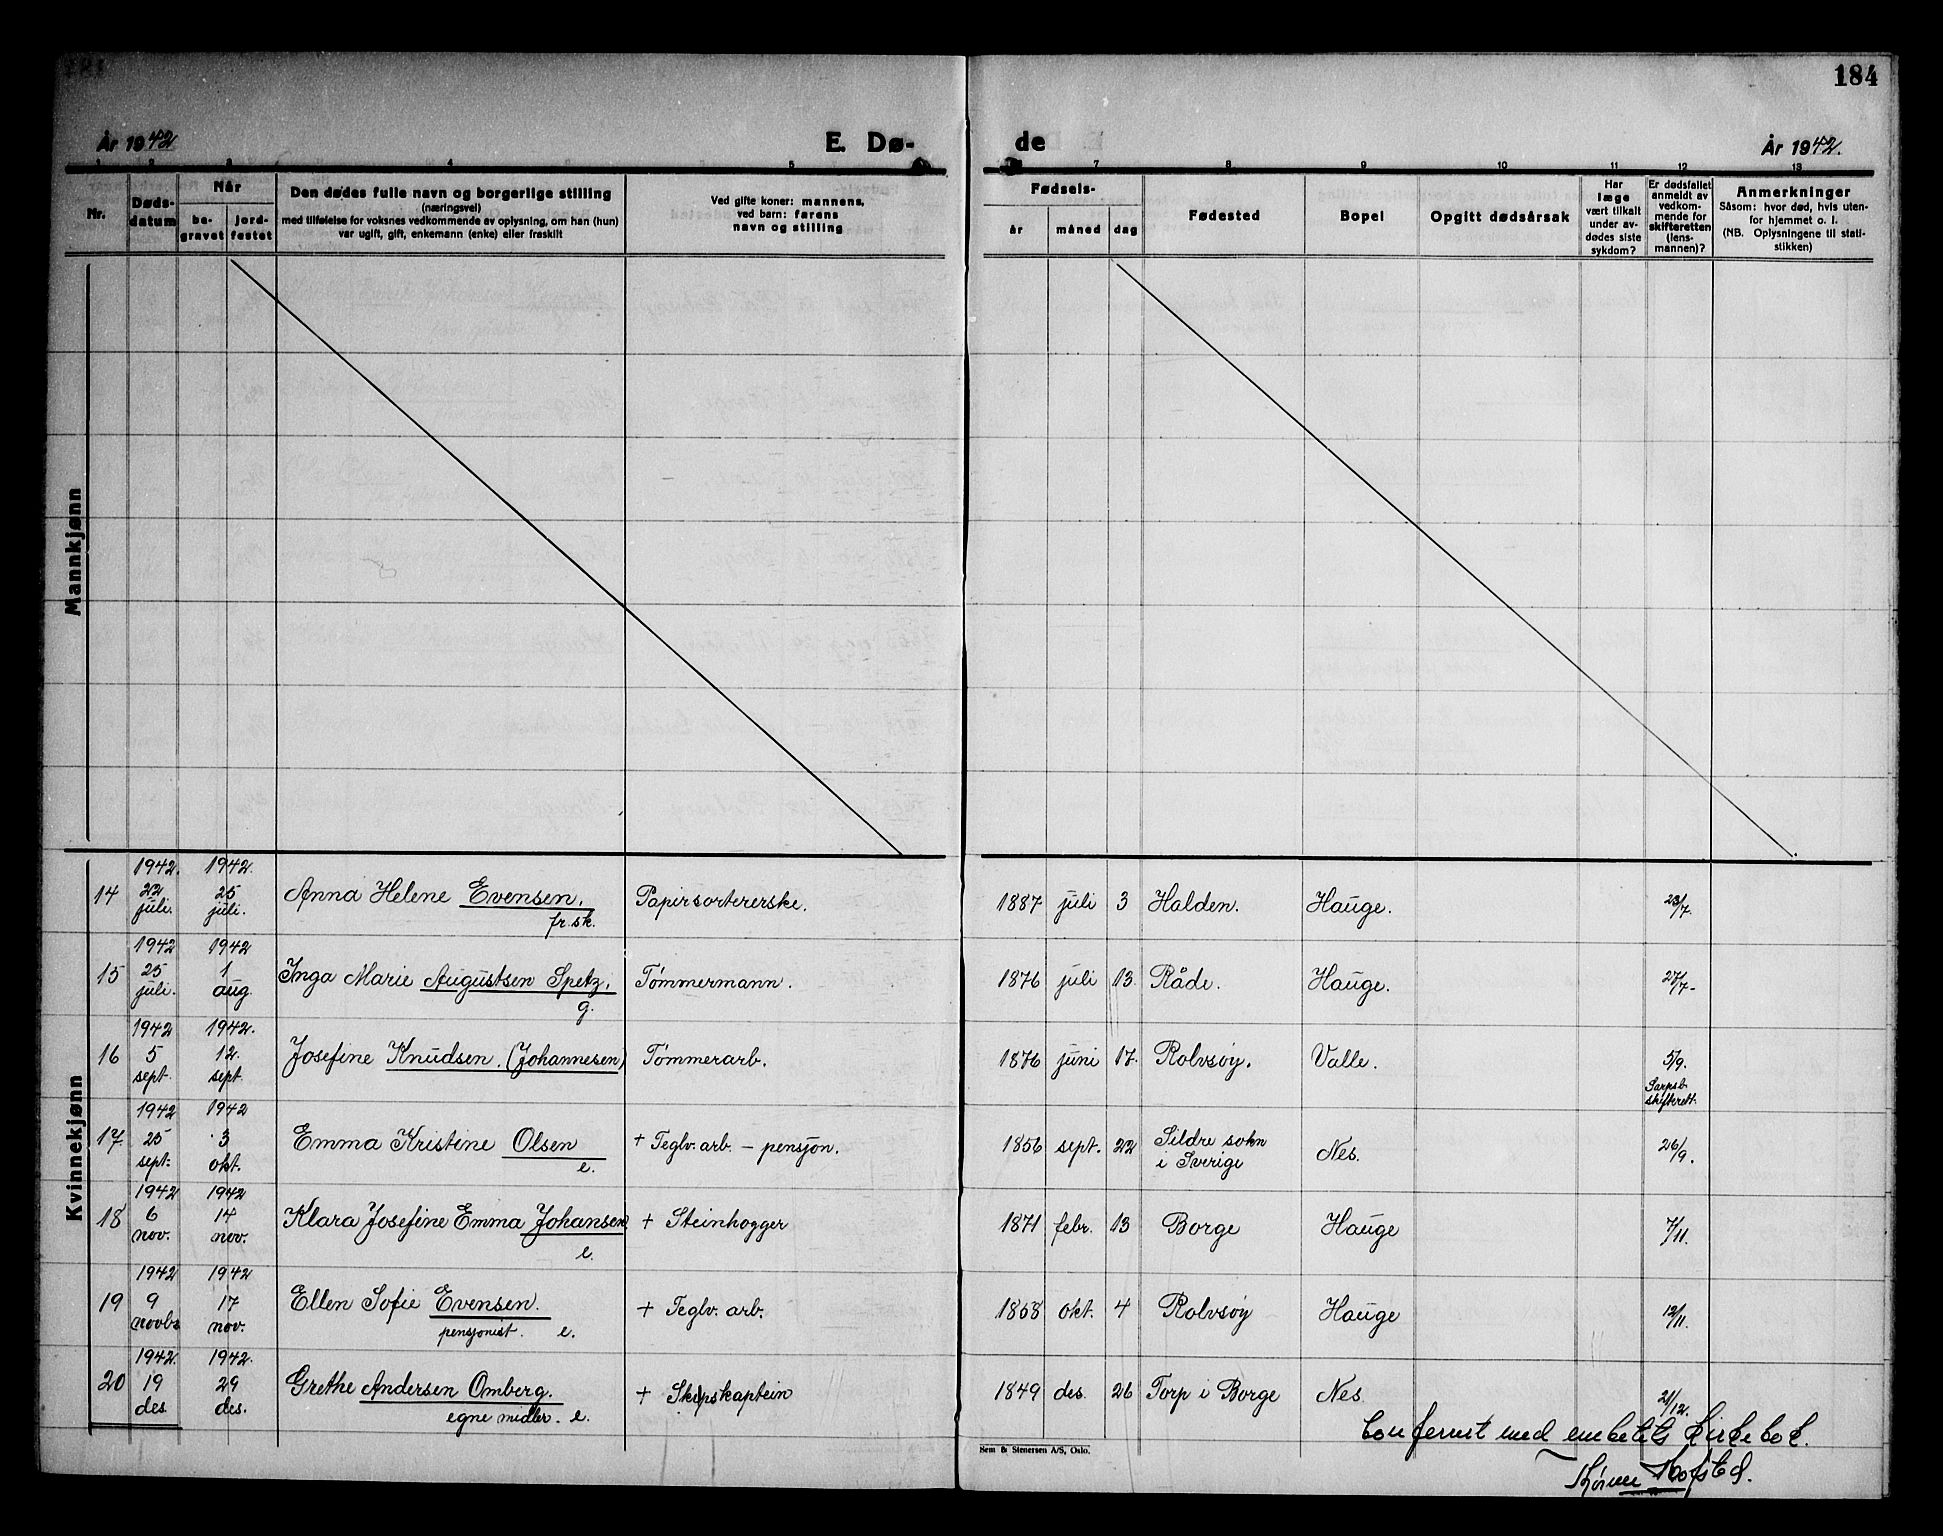 184
År 1942
E. Dø-
de
År 1942.
1 2 3 4 5 6 7 8 9 10 11 12 13
Nr.
Døds-
datum
Når
be-
gravet
jord-
festet
Den dødes fulle navn og borgerlige stilling
(næringsvei)
med tilføielse for voksnes vedkommende av oplysning, om han (hun)
var ugift, gift, enkemann (enke) eller fraskilt
Ved gifte koner: mannens,
ved barn: farens
navn og stilling
Fødsels-
år
måned
dag
Fødested
Bopel
Opgitt dødsårsak
Har
læge
vært tilkalt
under av-
dødes siste
sykdom?
Er dødsfallet
anmeldt av
vedkom-
mende for
skifteretten
(lens-
mannen)?
Anmerkninger
Såsom: hvor død, hvis uten-
for hjemmet o. l.
(NB. Oplysningene til stati-
stikken)
Mannkjønn
Kvinnekjønn
1942. 1942.
14 22 juli. 25 juli. Anna Helene Evensen. Papirsortererske. 1887 juli 3 Halden. Hauge. 23/7.
fr.sk.
1942 1942
15 25 juli. 1 aug. Inga Marie Augustsen Spetz. Tømmermann. 1876 juli 13. Råde. Hauge. 27/7-
g.
1942 1942.
16 5 sept. 12. sept. Josefine Knudsen. (Johannesen) Tømmerarb. 1876 juni 17. Rolvsøy. Valle. 5/9.
Sarpsb.
skifterett.
1942 1942
17. 25 sept: 3 okt. Emma Kristine Olsen + Teglv. arb. - pensjon. 1856 sept. 22 Sildre sokn
i Sverige Nes. 26/9.
e.
1942 1942
18 6 nov. 14 nov. Klara Josefine Emma Johansen + Steinhogger 1871 febr. 13 Borge Hauge 7/11.
e.
1942 1942
19 9 novbr 17 nov. Ellen Sofie Evensen. + Teglv. arb. 1858 okt. 4 Rolvsøy Hauge 12/11.
pensjonist. e.
1942. 1942.
20 19 des. 29 des. Grethe Andersen Omberg. + Skipskaptein 1849 des. 26 Torp i Borge Nes. 21/12.
egne midler. e.
Conferert med embetets kirkebok.
Sem & Stenersen A/S, Oslo.